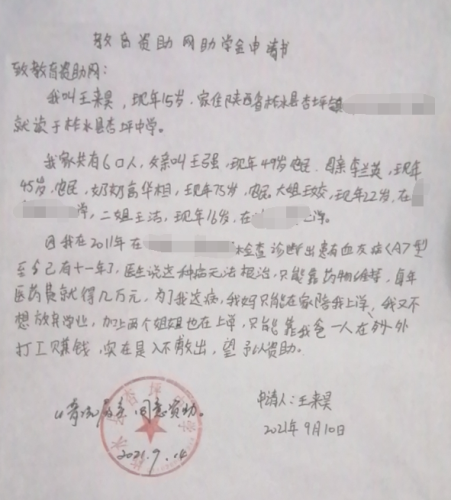 教育资助网助学金申请书
致教育资助网:
我叫王来昊,现年15岁,家住陕西省柞水县杏坪镇
就读于柞水县杏坪中学。
我家共有6口人,父亲叫王强,现年49岁,农民,母亲李兰英,现年
45岁,农民,奶奶 华相,现年75岁,农民,大姐王姣,现年22岁,在
学,二姐王洁,现年16岁,在 上学。
因我在2011年在 检查诊断出患有血友病(A7型)
至今已有十一年了,医生说这种病无法根治,只能靠药物维持,每年
医药费就得几万元,为了我这病,我妈只能在家陪我上学,我又不
想放弃学业,加上两个姐姐也在上学,只能靠我爸一人在外
打工赚钱,实在是入不敷出,望予以资助。
情况属实,同意资助。
2021.9.14
申请人:王来昊
2021年9月10日